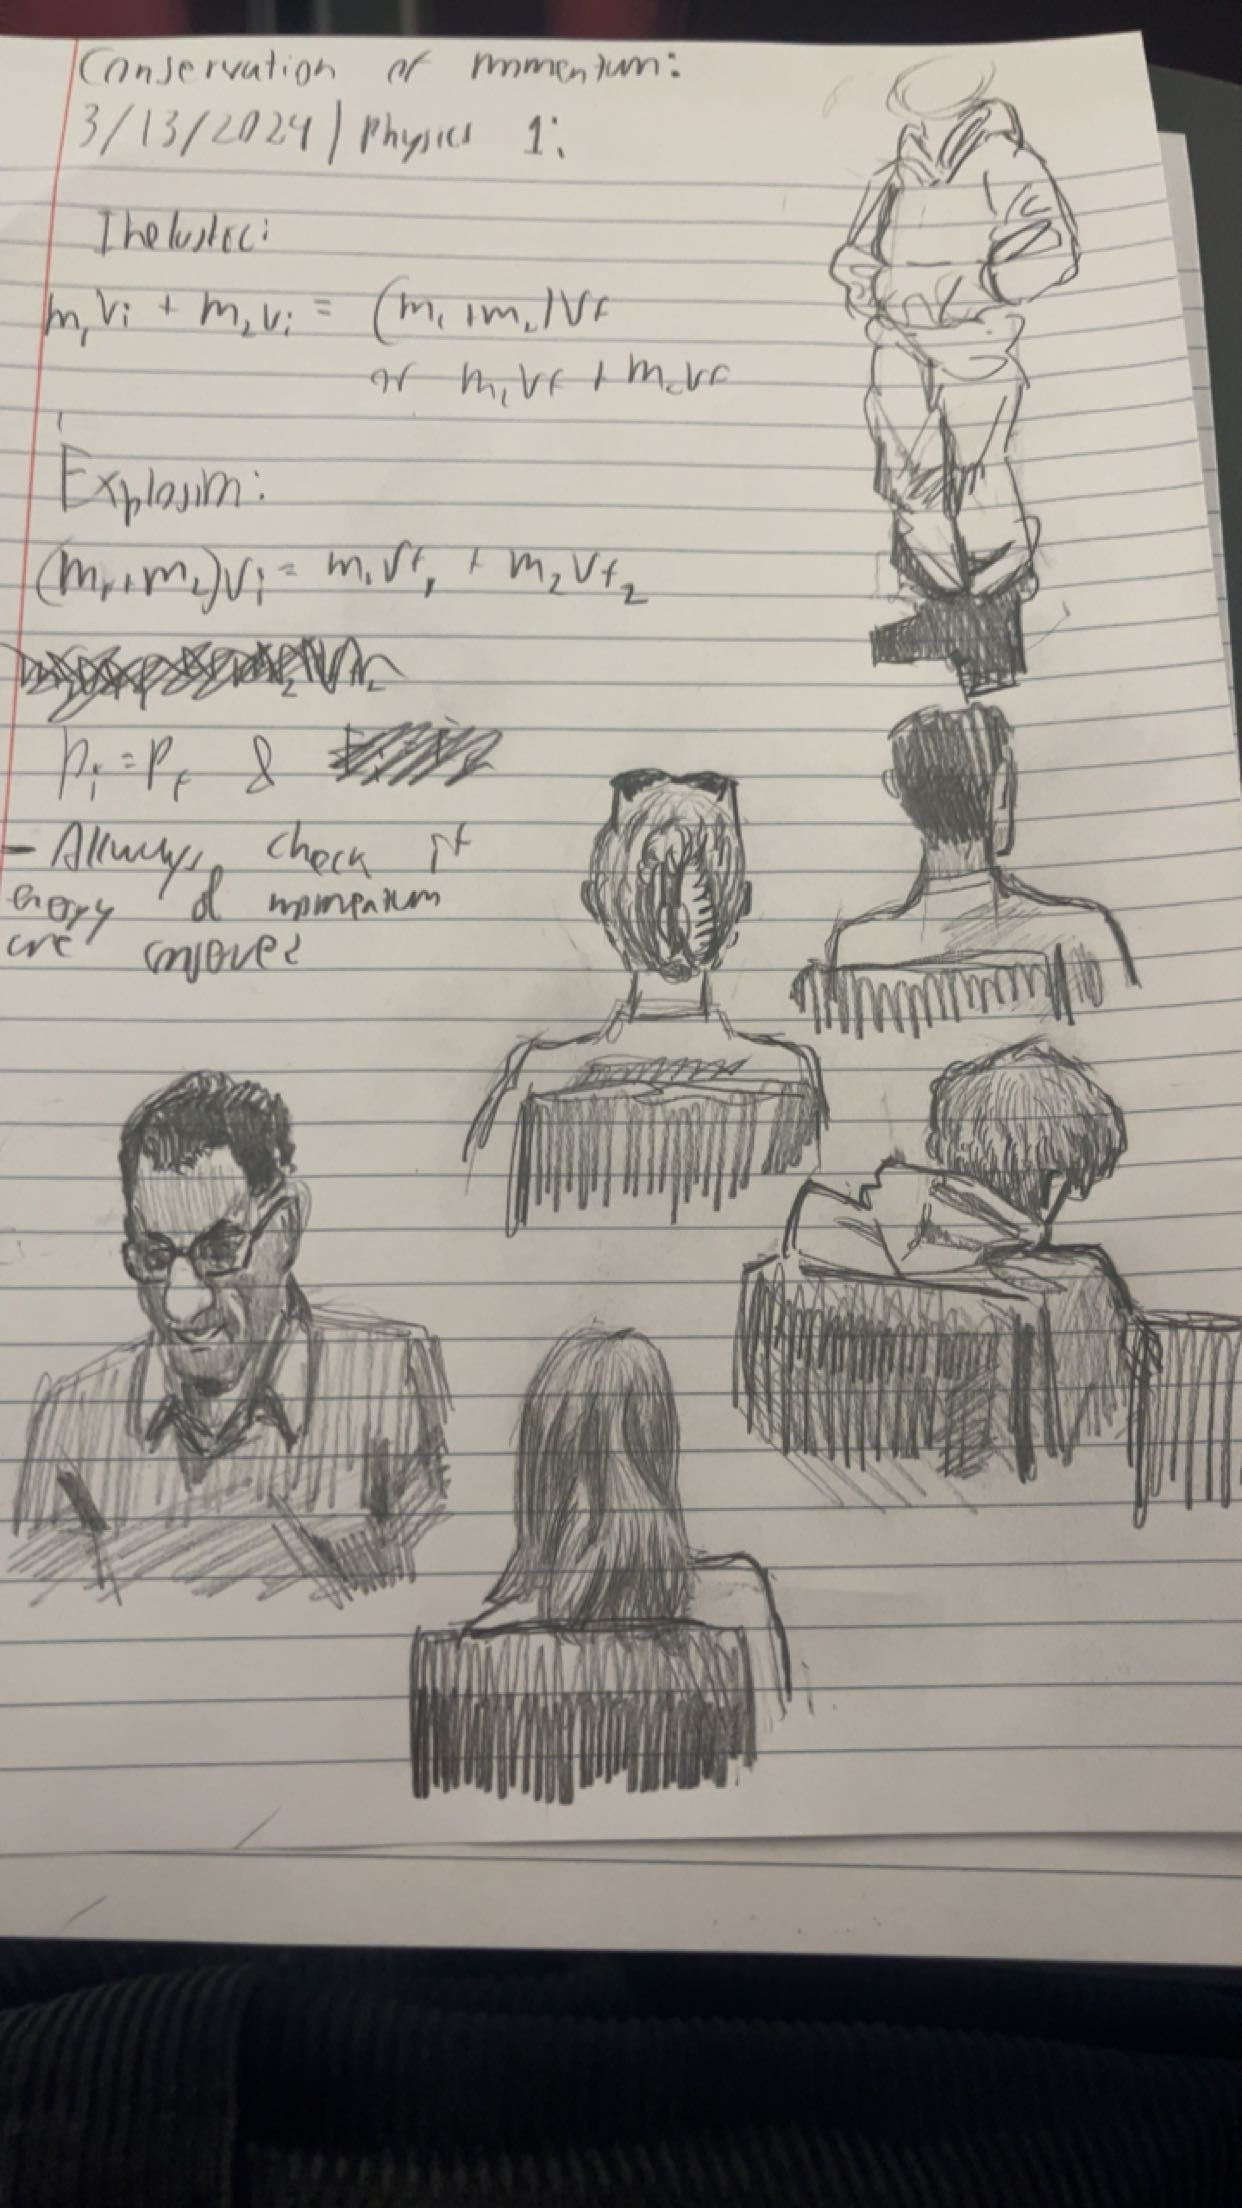 Conservation of momentum:
3/13/2024 | Physics 1:
Inelastic:
m₁Vi + m₂Vi = (m₁ + m₂)Vf
or m₁Vf + m₂Vf
Explosion:
(m₁+m₂)Vi = m₁Vf₁ + m₂Vf₂
Pi = Pf &
- Allways check if
energy & momentum
are